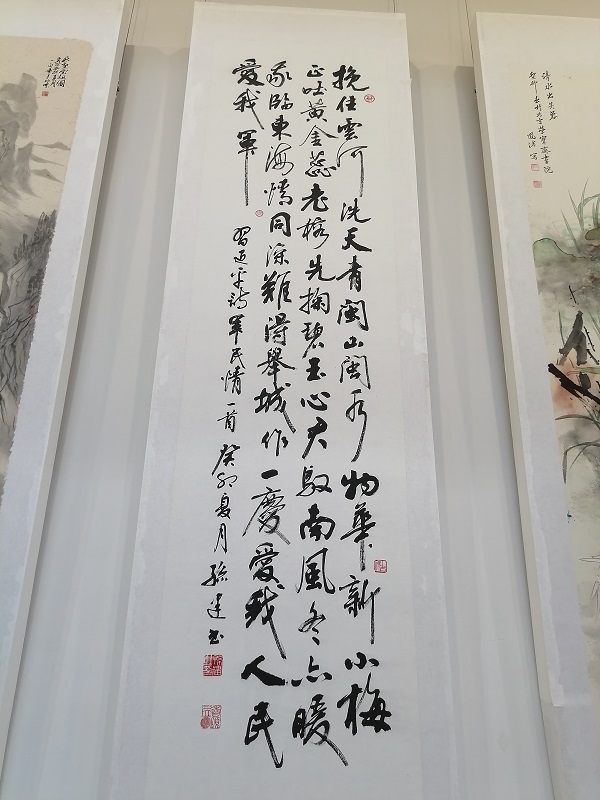 挽住雲河洗天青閩山閩水物華新小梅
正吐黃金蕊老榕先掬碧玉心君馭南風冬亦暖
我臨東海情同深難得舉城作一慶愛我人民
愛我軍
習近平詩軍民情一首 癸卯夏月 孫建書
清水出芙蓉
癸卯 於北京榮寶齋書院